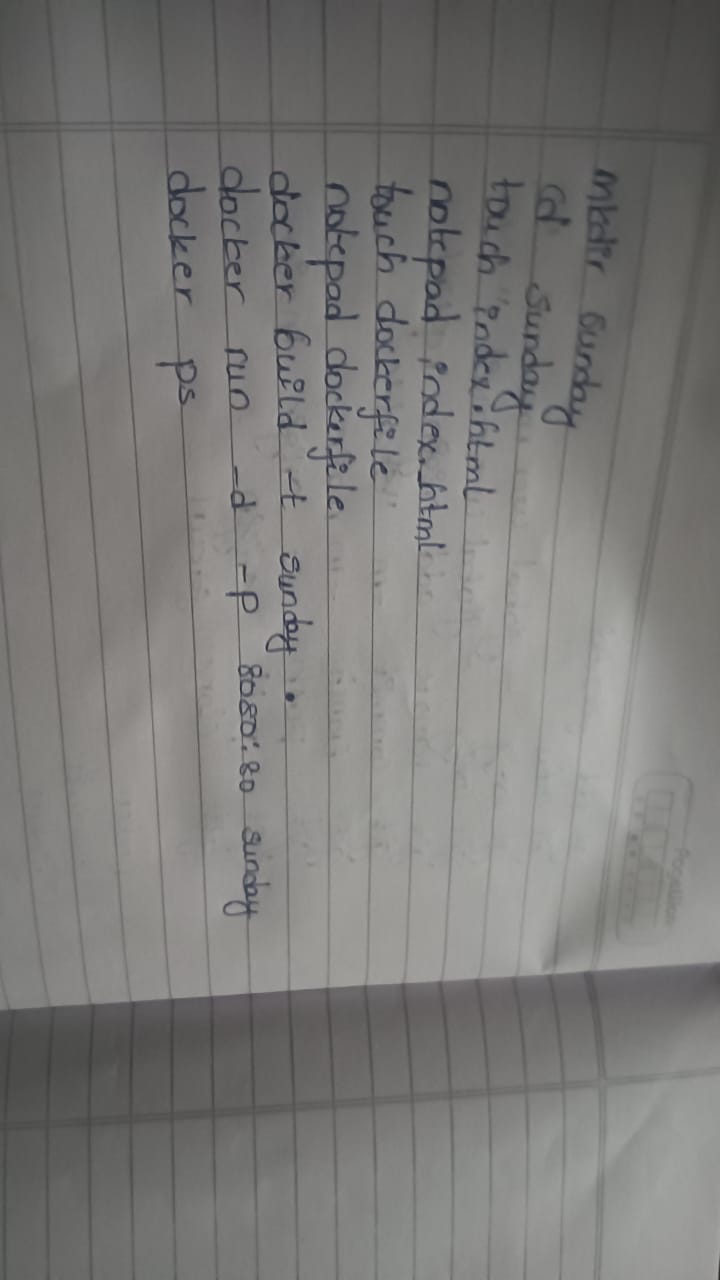 mkdir sunday
cd sunday
touch index.html
notepad index.html
touch dockerfile
notepad dockerfile
docker build -t sunday .
docker run -d -p 8080:80 sunday
docker ps